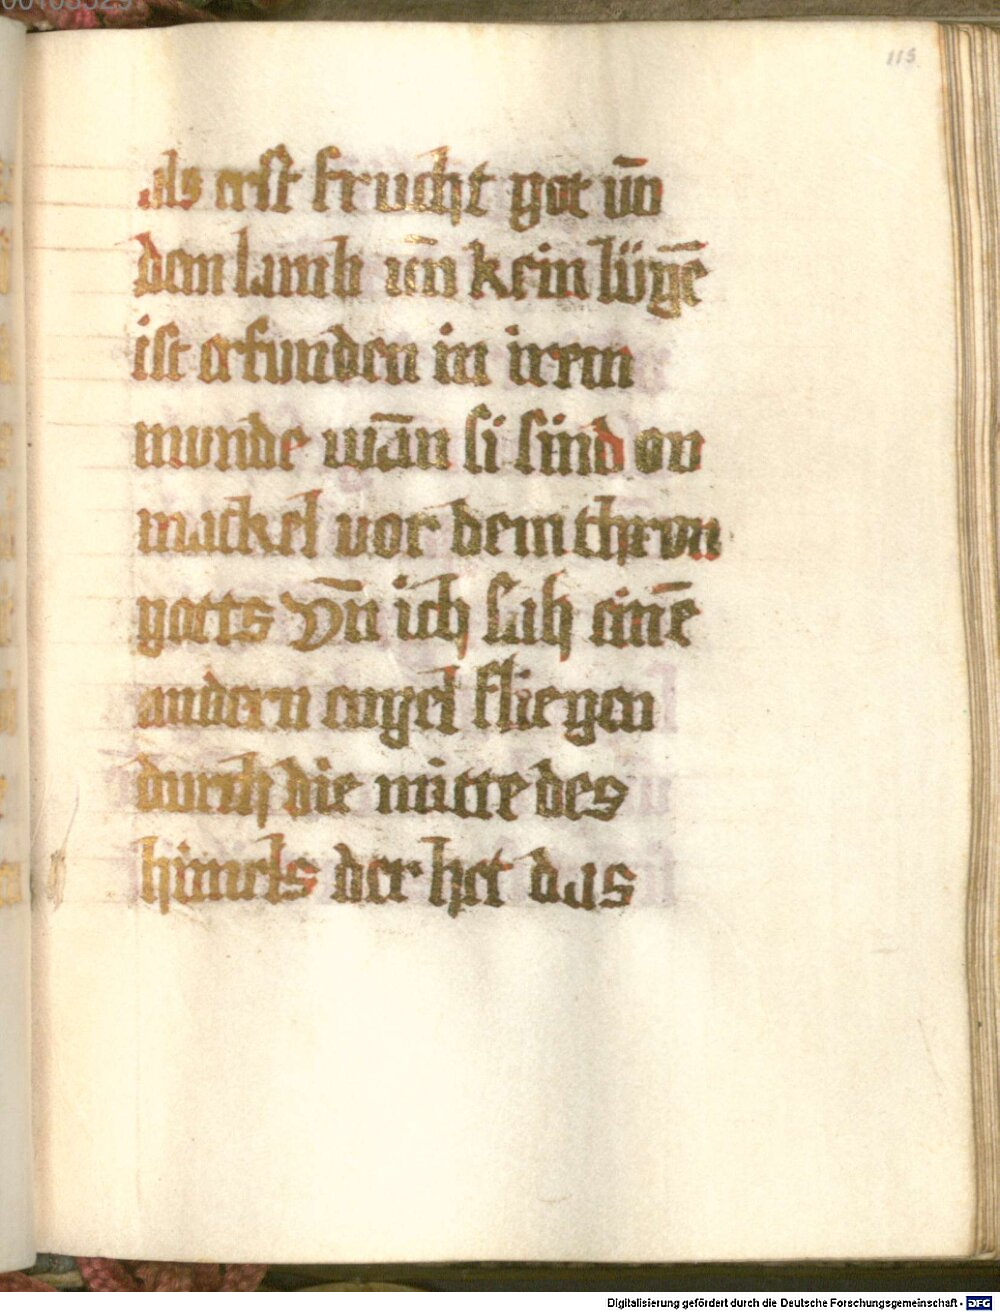 113
als erst frucht got vn̄
dem lamb vn̄ kein lügē
ist erfunden in irem
munde wān si sind on
mackel vor dem thron
gotts Vn̄ ich sah einē
andern engel fliegen
durch die mitte des
himels der het das
Digitalisierung gefördert durch die Deutsche Forschungsgemeinschaft - DFG